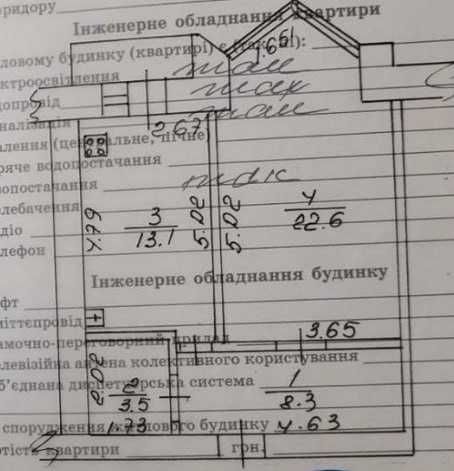 оридору
Інженерне обладнання квартири
ловому будинку (квартирі) є (так, ні):
1.65
ктроосвітлення так
допровід так
налізація так
2.67
алення (центральне, пічне)
ряче водопостачання
зопостачання так
елебачення
4.79 3 13.1 5.02 5.02 4 22.6
діо
елефон
Інженерне обладнання будинку
фт
міттєпровід
амочно-переговорний прилад 3.65
елевізійна антена колективного користування
б'єднана диспетчерська система
2.02 2 3.5 1 8.3
1.73 спорудження житлового будинку 4.63
ртість квартири грн.